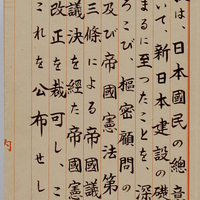 は、日本國民の總意
いて、新日本建設の礎
まるに至つたことを、深
ろこび、樞密顧問の
及び帝國憲法第
三條による帝國議
議決を經た帝國憲
改正を裁可し、こ
これを公布せし